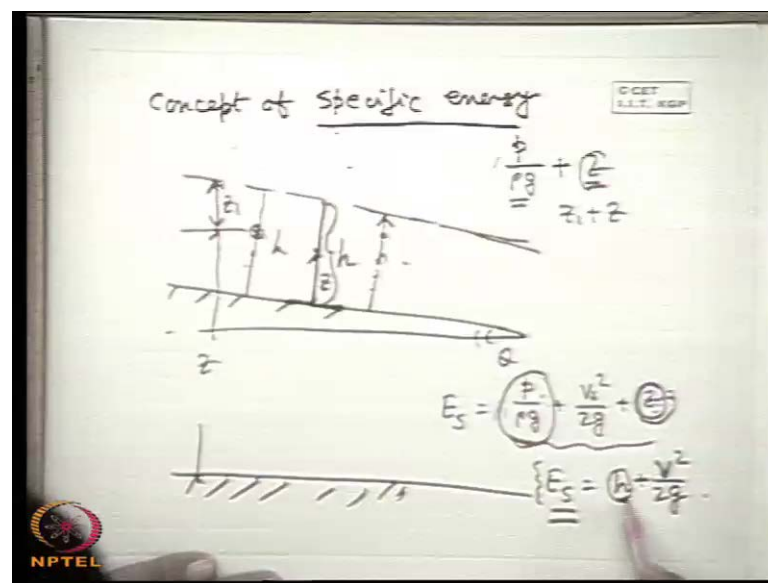 Concept of Specific energy
C CET
I.I.T. KGP
p/ρg + z
z₁ + z
z₁
h
h
z
h
θ
z
E_s = p/ρg + V²/2g + z
{E_s = h + V²/2g
NPTEL